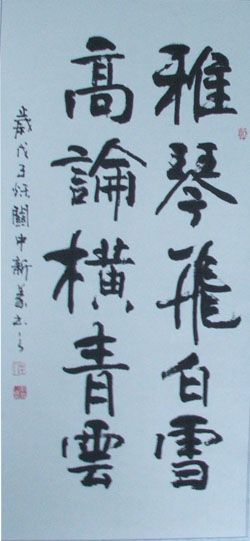 雅琴飛白雪
高論橫青雲
歲戊子秋關中新義書